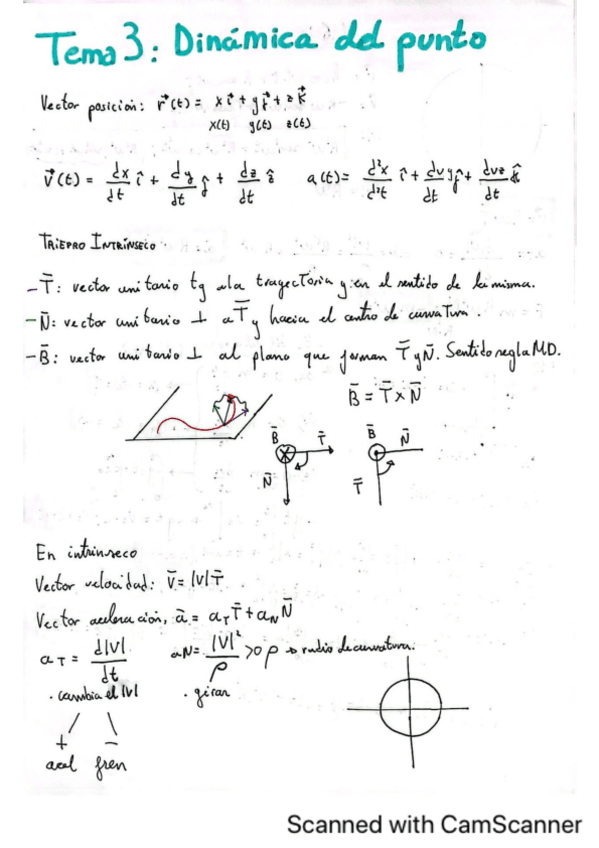 Tema 3: Dinámica del punto
Vector posición: r⃗(t) = x i⃗ + y j⃗ + z k⃗
x(t) y(t) z(t)
v⃗(t) = dx/dt î + dy/dt ĵ + dz/dt k̂ a(t) = d²x/d²t î + dvy/dt ĵ + dvz/dt k̂
TRIEDRO INTRÍNSECO
- T̄: vector unitario tg a la trayectoria y en el sentido de la misma.
- N̄: vector unitario ⊥ a T̄ y hacia el centro de curvatura
- B̄: vector unitario ⊥ al plano que forman T̄ y N̄. Sentido regla M.D.
B̄ = T̄ x N̄
B̄ T̄ B̄ N̄
N̄ T̄
En intrínseco
Vector velocidad: v̄ = |v| T̄
Vector aceleración, ā = aT T̄ + aN N̄
aT = d|v|/dt aN = |v|²/ρ >0 ρ → radio de curvatura.
· cambia el |v| · girar
+ −
acel fren
Scanned with CamScanner